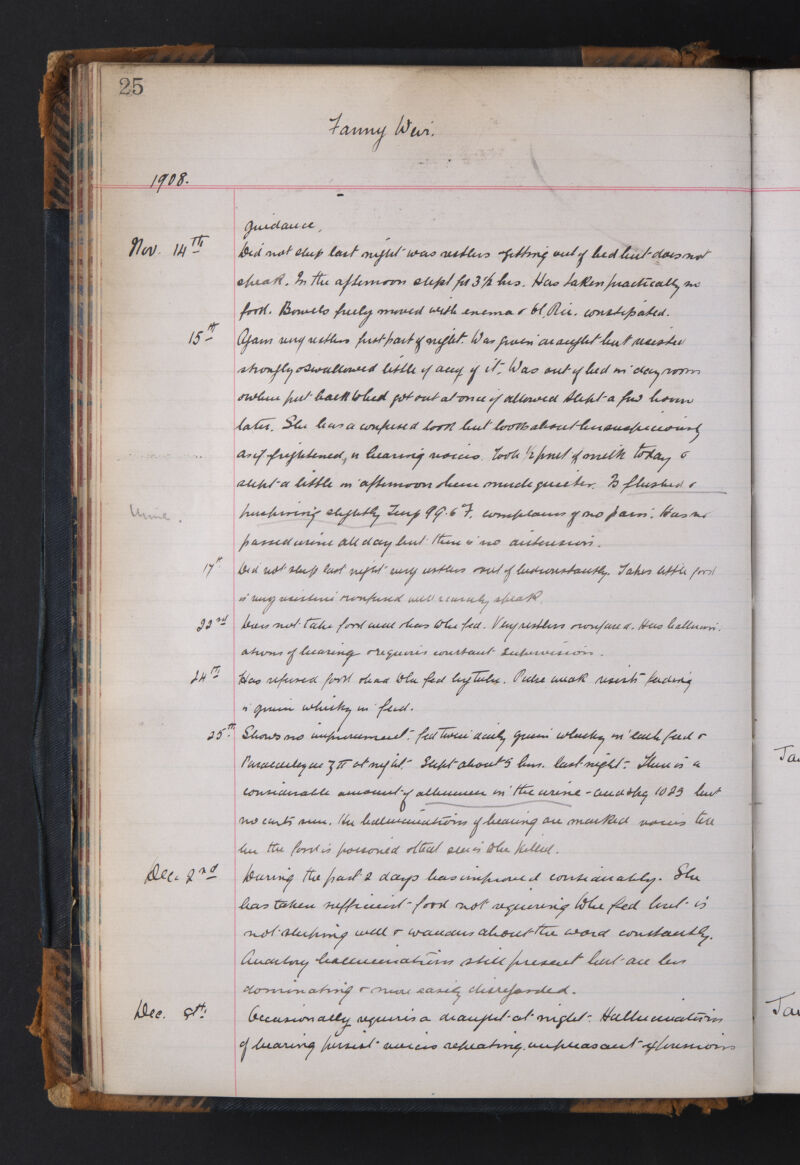 25
Fanny Weir.
1908.
guidance.
Nov. 14th Did not sleep last night was restless & getting out of bed but does not
speak. In the afternoon slept for 3½ hrs. Has taken practically no
food. Bowels freely moved with enema & Ol. Ric. constipated.
15th Again very restless first part of night. Was given draught but resisted
strongly & swallowed little if any of it. Was out of bed in day room
& when put back to bed got out at once if allowed slept a few hours
later. She has a confused look but looks about her suspiciously
as if frightened, is hearing voices. Took ½ pint of milk today &
slept a little in afternoon & much quieter. Is flushed &
Urine. perspiring slightly Temp 99.6°F. complains of no pain. Has not
passed urine all day but there is no distension.
17th Did not sleep last night very restless & out of bed constantly. Takes little food
is very resistive & confused will scarcely speak.
22nd Does not take food well & has to be fed. Very restless & confused. Has hallucin-
ations of hearing & requires constant supervision.
24th Has refused food & had to be fed by tube. Pulse weak resists feeding
is given whisky in feed.
25th Shows no improvement. fed twice daily given whisky in each feed &
Paraldehyde ʒii at night. Slept about 5 hrs. last night. There is a
considerable amount of albumen in the urine - acid & sg 1023 but
no casts seen. Her hallucinations of hearing are marked voices tell
her the food is poisoned & that she is to be killed.
Dec. 2nd During the past 2 days has improved considerably. She
has taken sufficient food not requiring to be fed but is
not sleeping well & wanders about the ward constantly.
Auditory hallucinations still present but are less
dominating & more easily disregarded.
Dec. 8th Occasionally requires a draught at night. Hallucinations
of hearing persist voices repeating unpleasant expressions